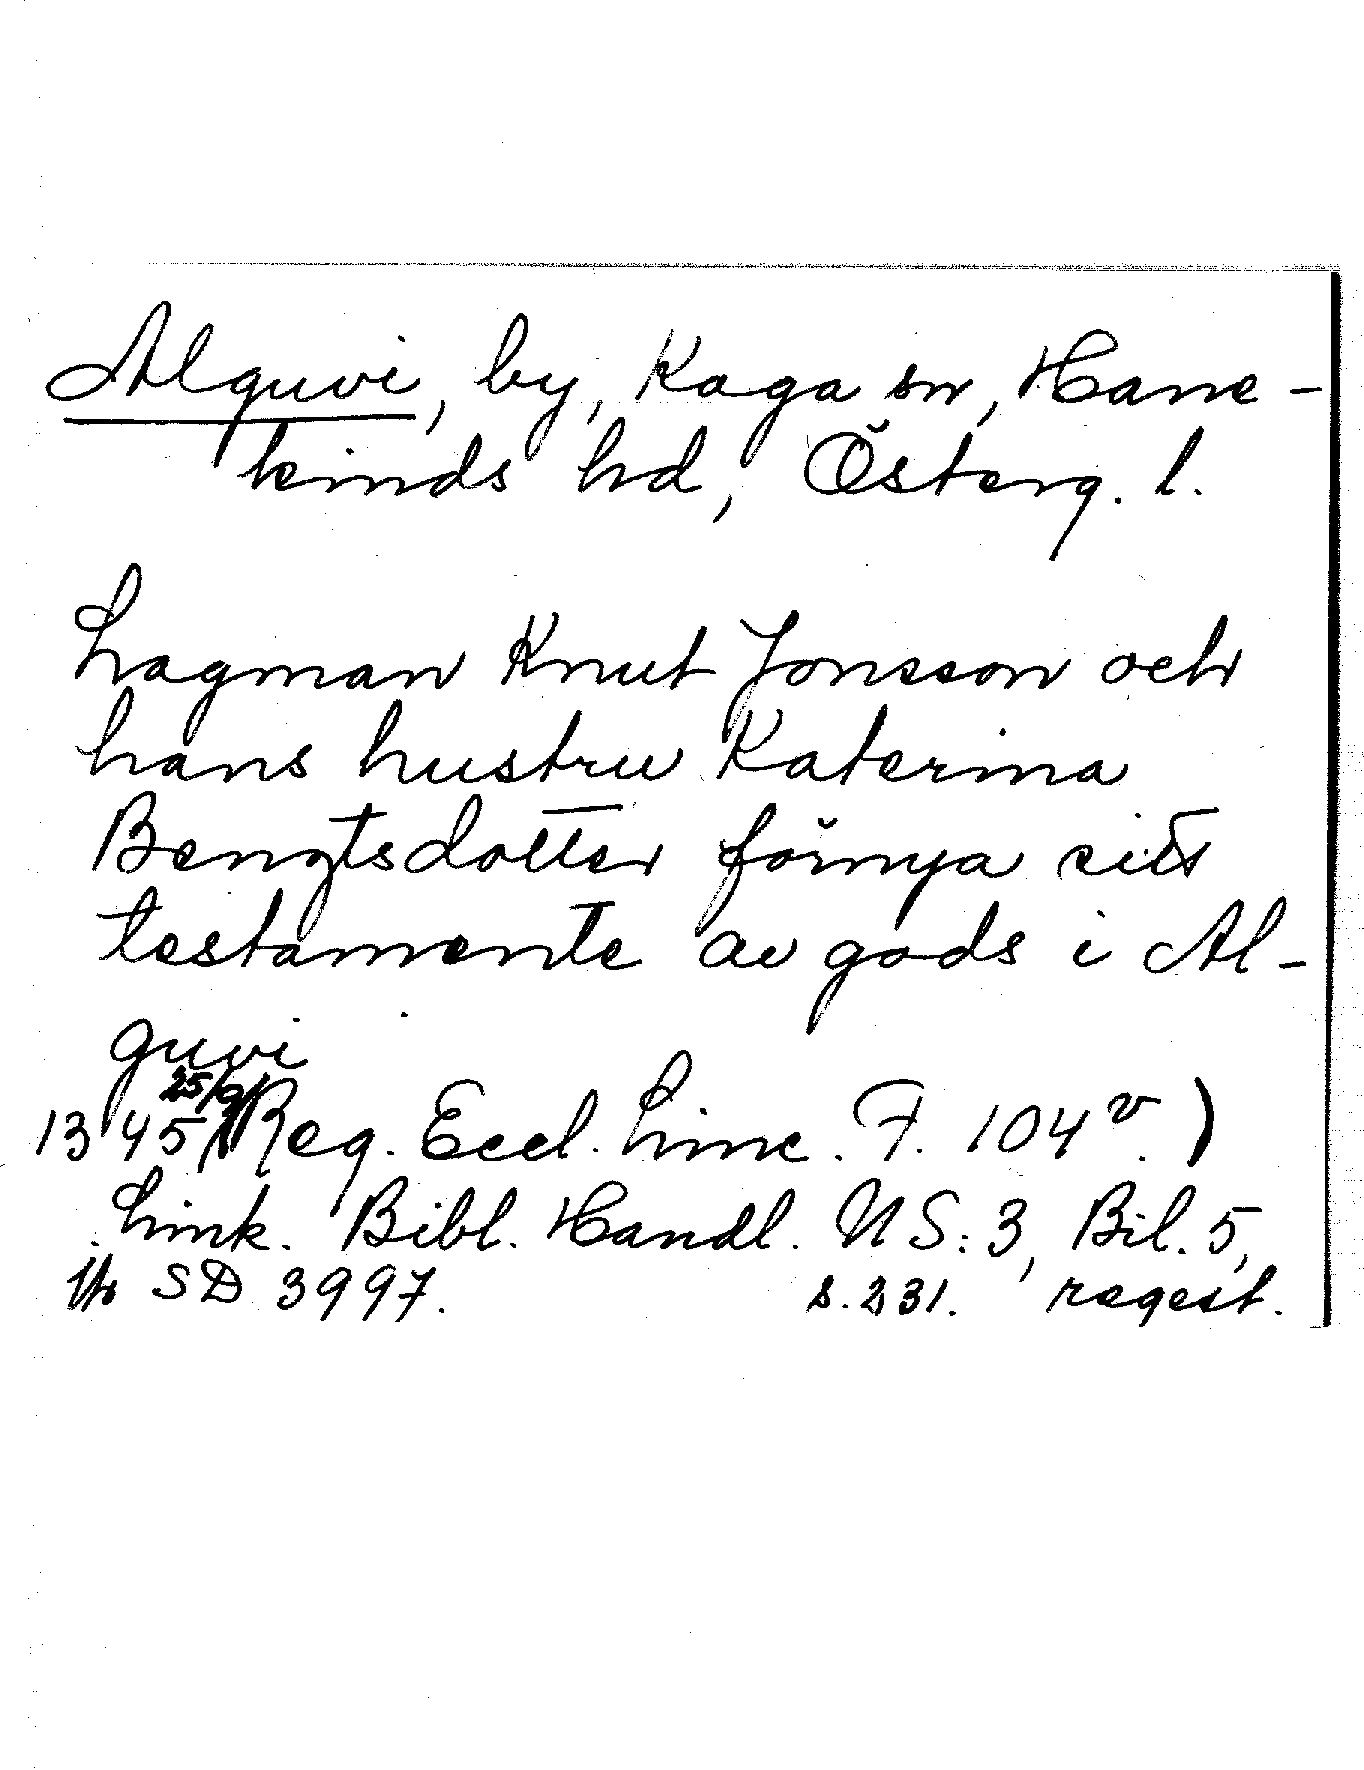 Alguvi, by, Kaga sn, Hane-
kinds hd, Österg. l.
Lagman Knut Jonsson och
hans hustru Katerina
Bengtsdotter förnya sitt
testamente av gods i Al-
guvi
1345 25/9 (Reg. Eccl. Linc. F. 104v.)
Link. Bibl. Handl. NS: 3, Bil. 5,
SD 3997. s. 231. regest.